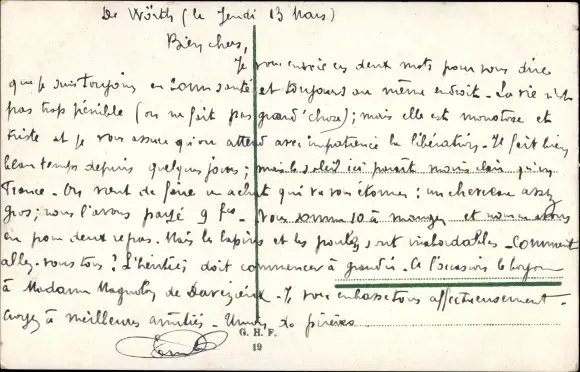 De Wörth (le Jendi 13 Mars)
Bien chers,
Je vous envoie ces deux mots pour vous dire
que je suis toujours en bonne santé et toujours au même endroit - La vie n'est
pas trop pénible (on ne fait pas grand'chose); mais elle est monotone et
triste et je vous assure qu'on attend avec impatience la libération - Il fait bien
beau temps depuis quelques jours; mais le soleil ici paraît moins clair qu'en
France - On vient de faire un achat qui va vous étonner: un chevreau assez
gros; nous l'avons payé 9 frs. Nous sommes 10 à manger et nous en avons
eu pour deux repas. Mais les lapins et les poulets sont inabordables - Comment
allez-vous tous? L'héritier doit commencer à grandir. A l'occasion le
à Madame de - Je vous embrasse tous affectueusement -
à meilleures amitiés -
G. H. F.
19